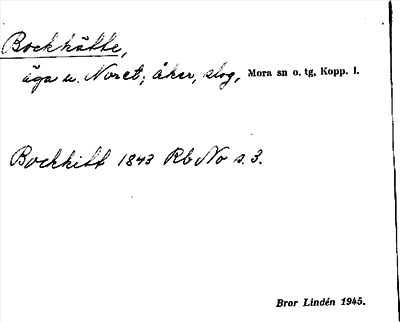 Bockhätte,
äga u. Noret; åker, slog, Mora sn o. tg, Kopp. l.
Bockhitt 1843 Rb No s. 3.
Bror Lindén 1945.